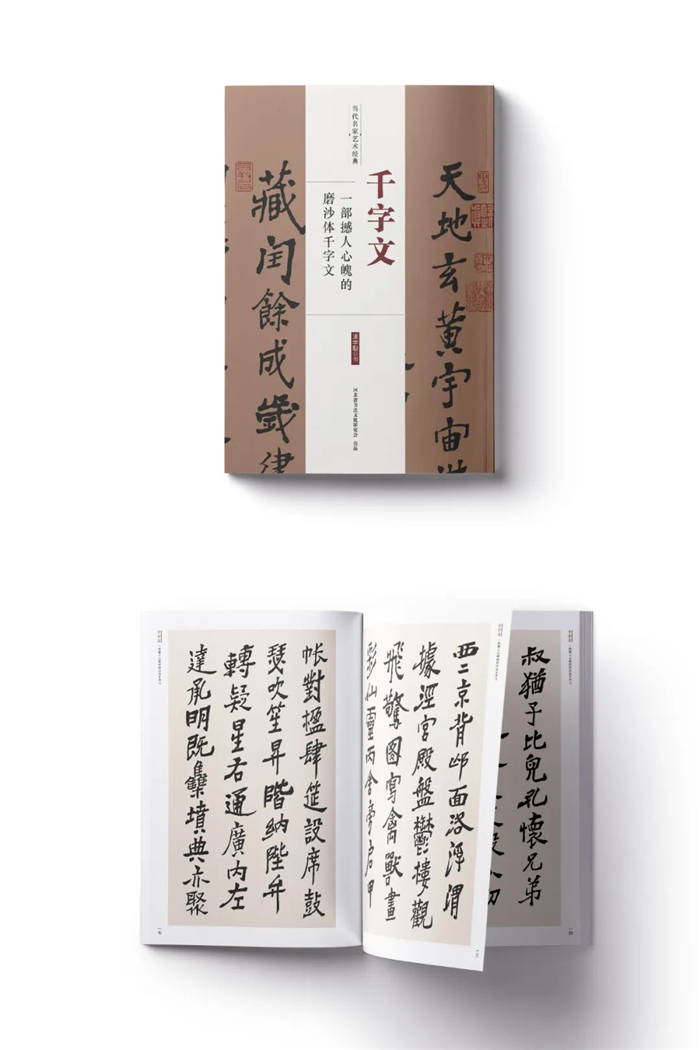 天地玄黃宇宙
当代名家艺术经典
千字文
一部撼人心魄的
磨沙体千字文
河北省书法文化研究会 出品
藏閏餘成歲律
叔猶子比兒孔懷兄弟
西二京背邙面洛浮渭
據涇宮殿盤鬱樓觀
飛驚圖寫禽獸畫
彩仙靈丙舍旁启甲
帳對楹肆筵設席鼓
瑟吹笙昇階納陛弁
轉疑星右通廣内左
達承明既集墳典亦聚